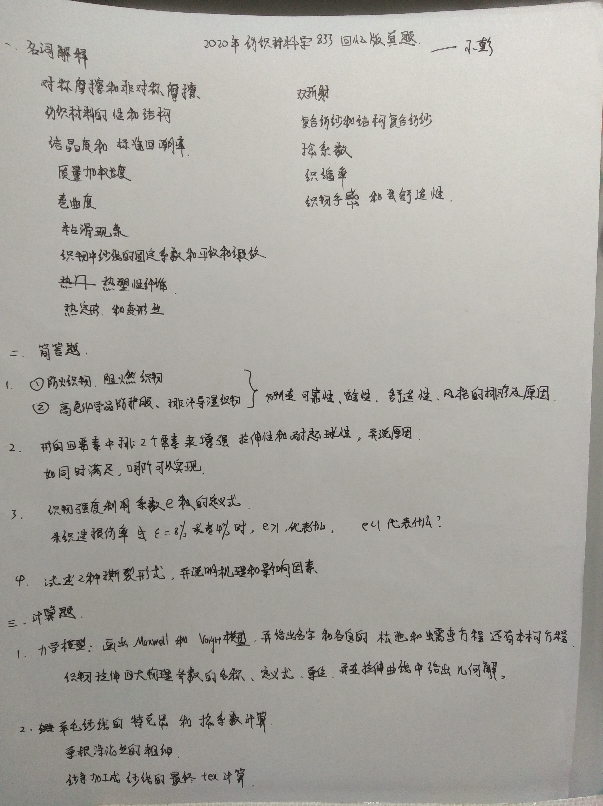 2020年纺织材料学833回忆版真题 —— 小彭
一、名词解释
对称摩擦和非对称摩擦
纺织材料的性和结构
结晶度和标准回潮率
质量加权长度
卷曲度
粘滑现象
织物中纱线的固定系数和
热塑性纤维
热定形和变形丝
双折射
复合纺纱和结构复合纺纱
捻系数
织缩率
织物手感和舒适性
二、简答题.
1. ①防火织物、阻燃织物
② 防护服、排汗导湿织物 } 可靠性、舒适性、风格的排序及原因
2. 四要素中排2个要素来增强拉伸性和耐起球性,并说原因
如同时满足,哪个可以实现.
3. 织物强度利用系数e 的定义式
织造损伤率 ε=8% 或者4%时, e>1代表什么, e<1代表什么?
4. 试述2种撕裂形式,并说明机理和影响因素
三、计算题.
1. 力学模型:画出Maxwell和Voigt模型,并给出名字和各自的松弛和蠕变方程还有本构方程.
织物拉伸四大物理参数的名称、定义式、单位、并在拉伸曲线中给出几何解。
2. 羊毛纱线的特克斯和捻系数计算
涤纶丝的粗细
加工成纱线的最终tex计算